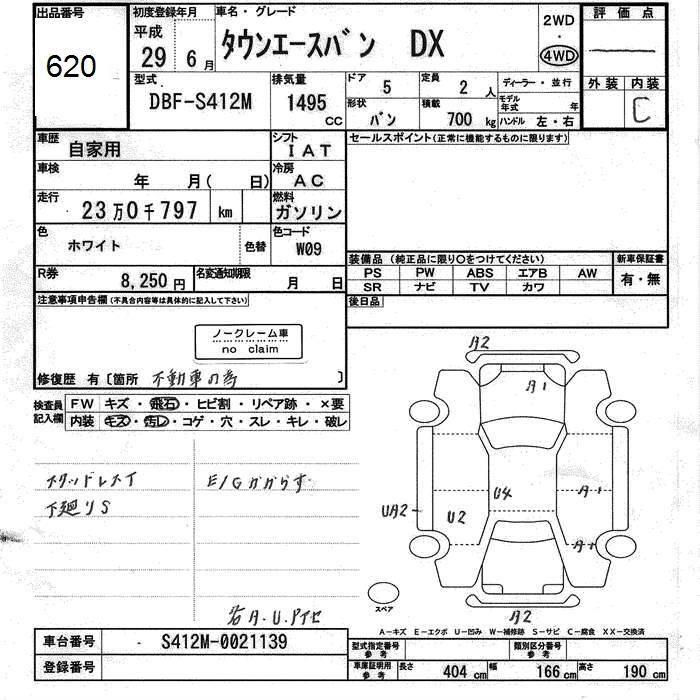 出品番号
620
初度登録年月
平成
29年 6月
車名・グレード
タウンエースバン DX
2WD
・
4WD
評価点
外装 内装
C
型式
DBF-S412M
排気量
1495
CC
ドア
5
定員
2人
形状
バン
積載
700kg
ディーラー・並行
モデル年式 年
ハンドル 左・右
車歴
自家用
シフト
IAT
車検
年 月( 日)
冷房
AC
走行
23万0千797 km
燃料
ガソリン
色
ホワイト
色替
色コード
W09
R券
8,250円
名変通知期限
月 日
セールスポイント(正常に機能するものに限ります)
装備品(純正品に限り○をつけてください)
新車保証書
PS PW ABS エアB AW
SR ナビ TV カワ
有・無
後日品
注意事項申告欄(不具合内容等は具体的に記入して下さい)
ノークレーム車
no claim
修復歴 有〔箇所 不動車の為 〕
検査員記入欄
FW キズ・飛石・ヒビ割・リペア跡・×要
内装 キズ・汚レ・コゲ・穴・スレ・キレ・破レ
スタッドレスT
下廻りS
E/Gかからず
右A.U.
A2
A1
U4
A1
UA2
U2
A1
A2
スペア
A-キズ E-エクボ U-凹み W-補修跡 S-サビ C-腐食 XX-交換済
車台番号
S412M-0021139
登録番号
型式指定番号
参考
類別区分番号
参考
車庫証明用
参考
長さ 404cm 幅 166cm 高さ 190cm